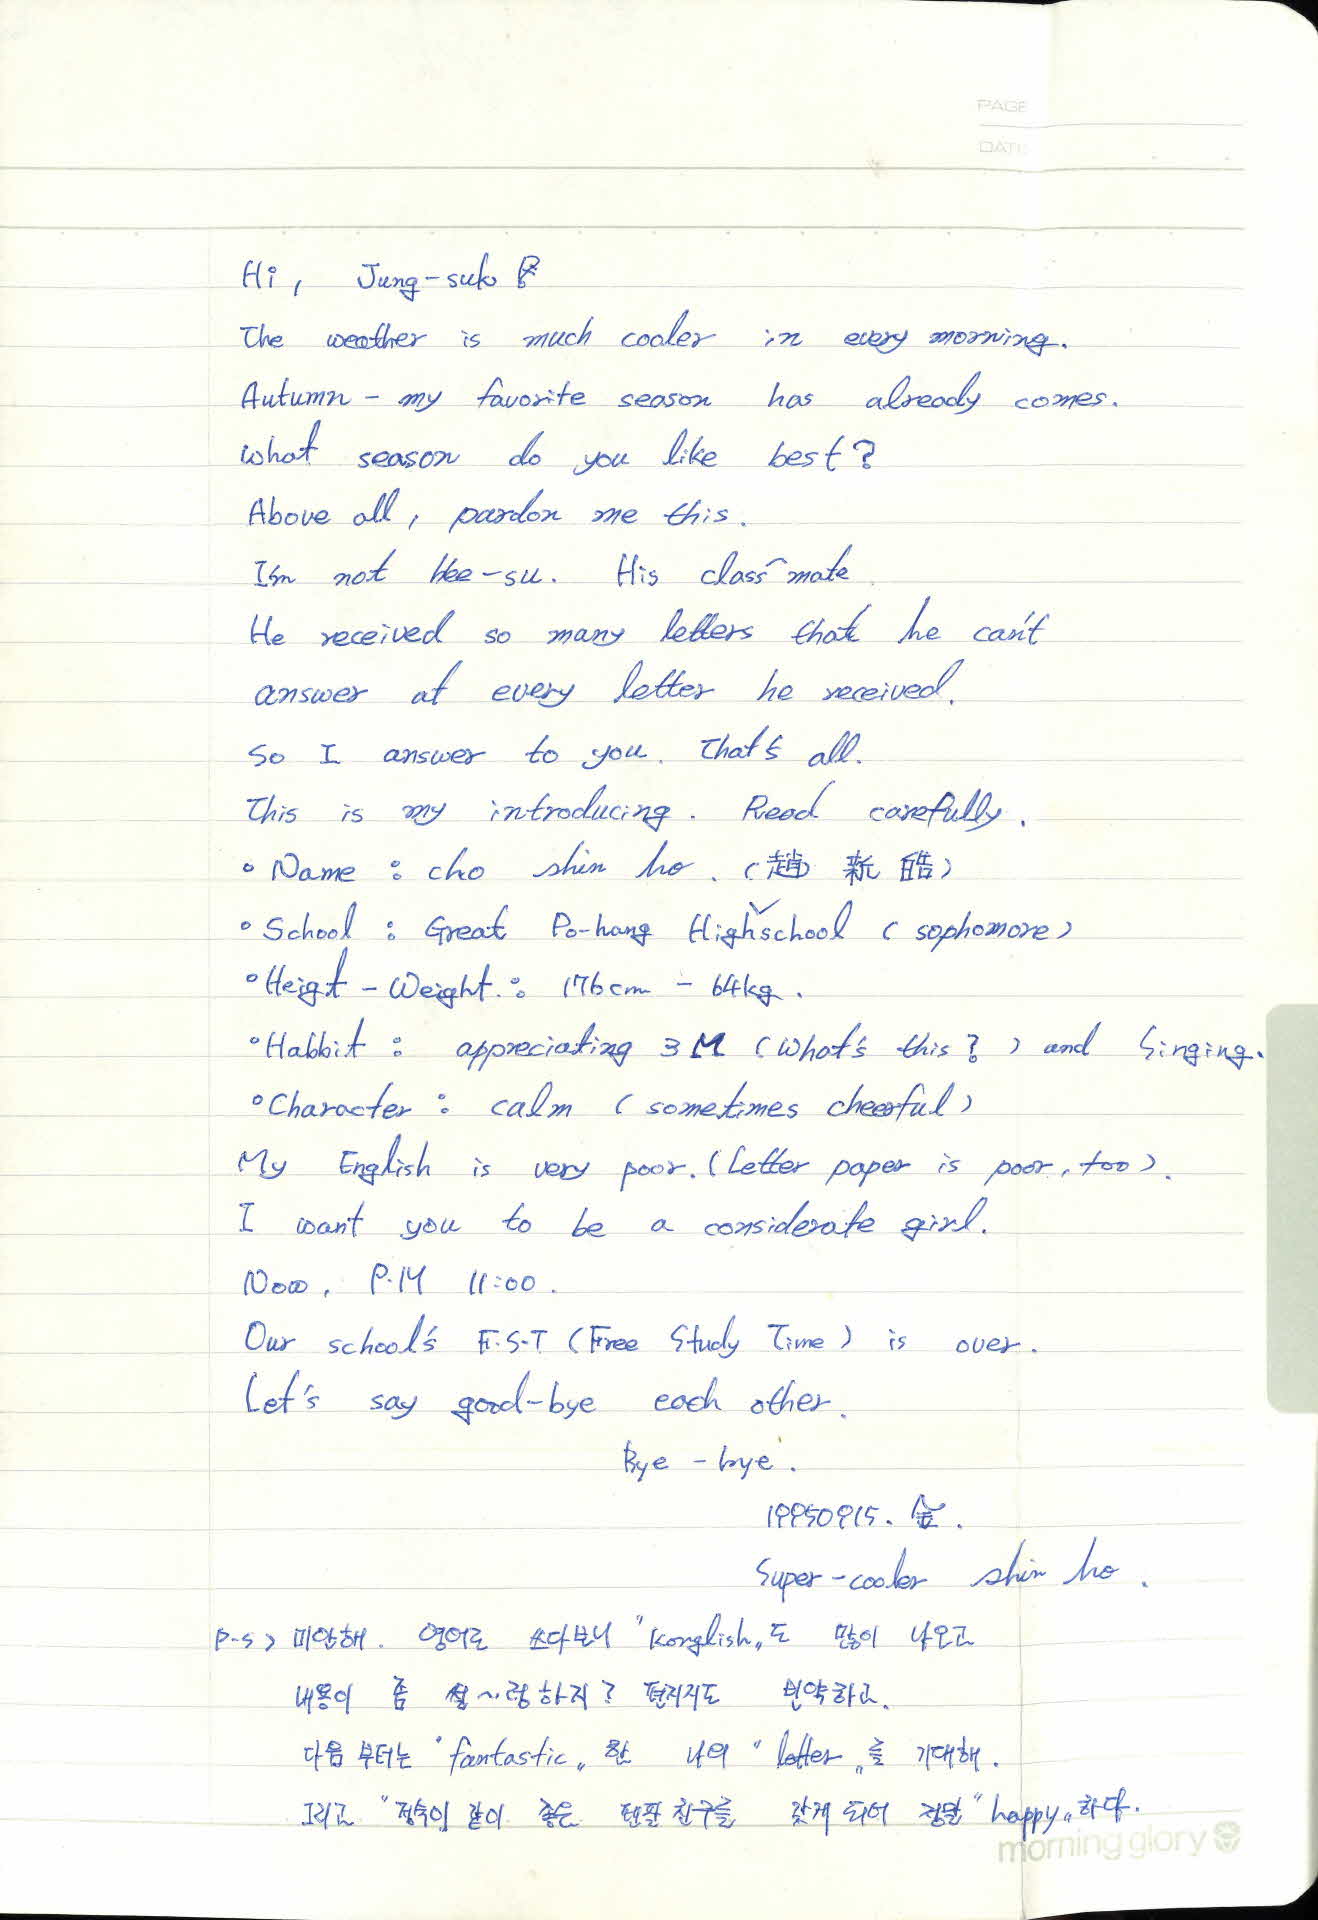 PAGE
DATE
Hi, Jung-suk
The weather is much cooler in every morning.
Autumn - my favorite season has already comes.
What season do you like best?
Above all, pardon me this.
I'm not Hee-su. His class mate.
He received so many letters that he can't
answer at every letter he received.
So I answer to you. That's all.
This is my introducing. Read carefully.
◦ Name : cho shin ho. (趙 新 皓)
◦ School : Great Po-hang Highschool (sophomore)
◦ Heigt - Weight. : 176cm - 64kg.
◦ Habbit : appreciating 3M (What's this?) and Singing.
◦ Character : calm (sometimes cheerful)
My English is very poor. (Letter paper is poor, too).
I want you to be a considerate girl.
Now, P.M 11:00.
Our school's F.S.T (Free Study Time) is over.
Let's say good-bye each other.
Bye - bye.
19950915. 金.
Super-cooler shin ho.
P.S> 미안해. 영어로 쓰다보니 "Konglish"도 많이 나오고
내용이 좀 썰~렁하지? 편지지도 빈약하고.
다음부터는 "fantastic"한 나의 "letter"를 기대해.
그리고 "정숙이 같이 좋은 펜팔친구를 갖게 되어 정말 "happy"하다.
morning glory